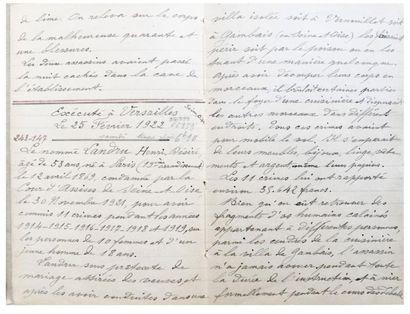 de lime. On releva sur le corps
de la malheureuse quarante et
une blessures.
Les deux assassins avaient passé
la nuit cachés dans la cave de
l'établissement.
Exécuté à Versailles
Le 25 Février 1922
Le nommé Landru Henri Désiré,
âgé de 53 ans, né à Paris,
le 12 avril 1869, condamné par la
Cour d'Assises de Seine et Oise,
le 30 Novembre 1921, pour avoir
commis 11 crimes pendant les années
1914-1915-1916-1917-1918 et 1919, sur
les personnes de 10 femmes et d'un
jeune homme de 18 ans.
Landru sous prétexte de
mariage attirait des veuves et
après les avoir conduites dans une
villa isolée soit à Vernouillet soit
à Gambais (Seine et Oise), les
périr soit par le poison ou en les
tuant d'une manière quelconque.
Après avoir découpé leurs corps en
morceaux, il brûlait certaines parties
dans le foyer d'une cuisinière et
les autres morceaux dans différents
endroits. Tous ces crimes avaient
pour mobile le vol. Il s'emparait
de leurs meubles, bijoux, linge, vêtements
et argent, même leurs papiers.
Les 11 crimes lui ont rapporté
environ 35.642 francs.
Bien qu'on ait retrouvé des
fragments d'os humains calcinés
appartenant à différentes personnes,
parmi les cendres de la cuisinière
à la villa de Gambais, l'assassin
n'a jamais avoué pendant toute
la durée de l'instruction, et a nié
formellement pendant le cours des débats